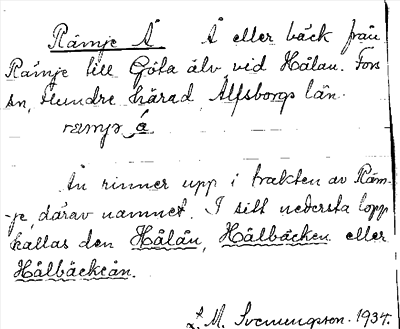 Rämje Å Å eller bäck från
Rämje till Göta älv vid Hålan. Fors
sn, Flundre härad, Älfsborgs län.
ramjə å
Ån rinner upp i trakten av Räm-
-je, därav namnet. I sitt nedersta lopp
kallas den Hålån, Hålbäcken eller
Hålbäckeån.
M. Svenungson. 1934.